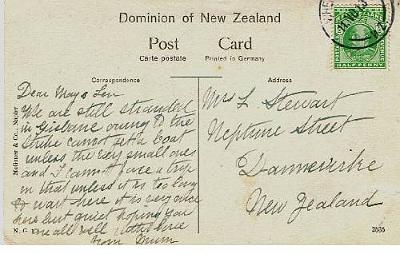 Dominion of New Zealand
Post Card
Carte postale
Printed in Germany
Correspondence
Address
Dear May & Len
We are still stranded
in Gisborne owing to the
Strike cannot get a boat
unless the very small ones
and I cannot face a trip
in that unless it is too long
to wait here it is very nice
here but quiet hoping you
are all well
from Mum
Mrs L Stewart
Neptune Street
Dannevirke
New Zealand
HALFPENNY
N.Z.